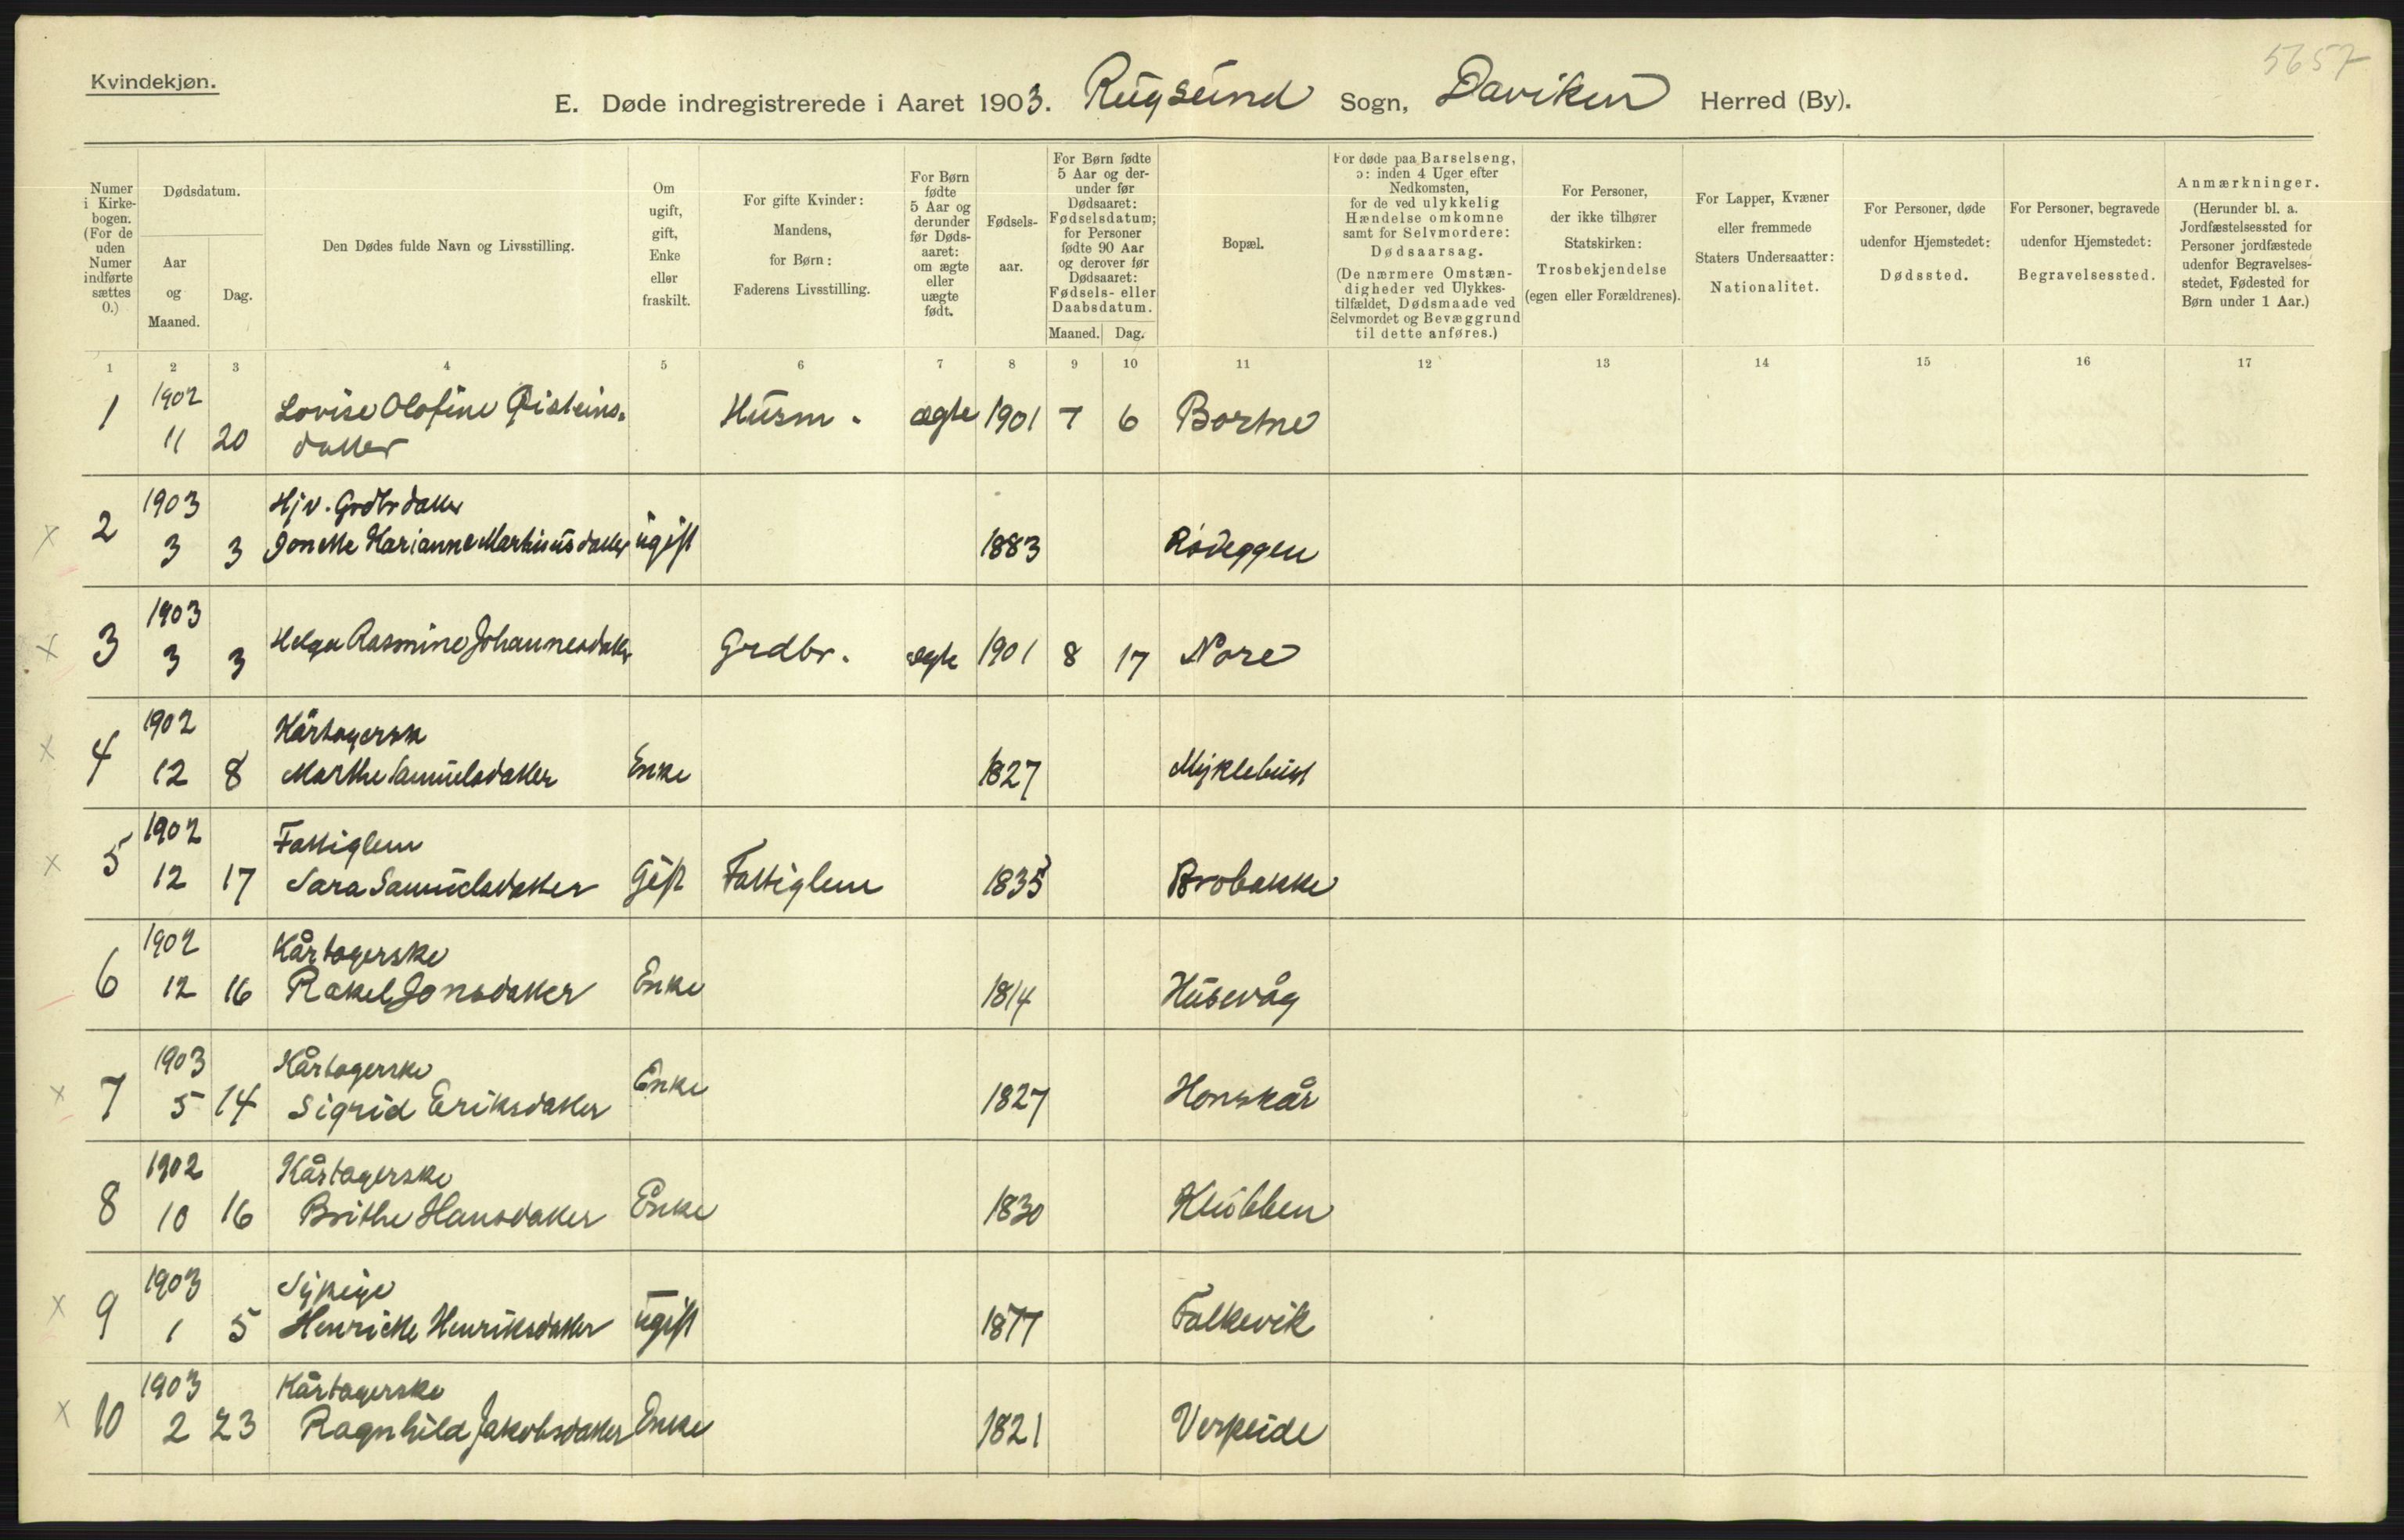 5657
Kvindekjøn.
E. Døde indregistrerede i Aaret 1903. Rugsund Sogn, Daviken Herred (By).
Numer i Kirke-bogen. (For de uden Numer indførte sættes 0.)
Dødsdatum.
Aar og Maaned.
Dag.
Den Dødes fulde Navn og Livsstilling.
Om ugift, gift, Enke eller fraskilt.
For gifte Kvinder: Mandens, for Børn: Faderens Livsstilling.
For Børn fødte 5 Aar og derunder før Døds-aaret: om ægte eller uægte født.
Fødsels-aar.
For Børn fødte 5 Aar og der-under før Dødsaaret: Fødselsdatum; for Personer fødte 90 Aar og derover før Dødsaaret: Fødsels- eller Daabsdatum.
Maaned. Dag.
Bopæl.
For døde paa Barselseng, ɔ: inden 4 Uger efter Nedkomsten, for de ved ulykkelig Hændelse omkomne samt for Selvmordere: Dødsaarsag. (De nærmere Omstæn-digheder ved Ulykkes-tilfældet, Dødsmaade ved Selvmordet og Bevæggrund til dette anføres.)
For Personer, der ikke tilhører Statskirken: Trosbekjendelse (egen eller Forældrenes).
For Lapper, Kvæner eller fremmede Staters Undersaatter: Nationalitet.
For Personer, døde udenfor Hjemstedet: Dødssted.
For Personer, begravede udenfor Hjemstedet: Begravelsessted.
Anmærkninger. (Herunder bl. a. Jordfæstelsessted for Personer jordfæstede udenfor Begravelses-stedet, Fødested for Børn under 1 Aar.)
1 2 3 4 5 6 7 8 9 10 11 12 13 14 15 16 17
1902
1 11 20 Lovise Olofine Øisteins-datter Husm. ægte 1901 7 6 Bortne
1903 Hjv. Grdbrdatter
x 2 3 3 Jonette Marianne Martinusdatter ugift 1883 Rødeggen
1903
x 3 3 3 Helga Rasmine Johannesdatter Grdbr. ægte 1901 8 17 Nore
1902 Kårtagerske
x 4 12 8 Marthe Samuelsdatter Enke 1827 Myklebust
1902 Fattiglem
x 5 12 17 Sara Samuelsdatter Gift Fattiglem 1835 Brobakke
1902 Kårtagerske
6 12 16 Rakel Jonsdatter Enke 1814 Husevåg
1903 Kårtagerske
x 7 5 14 Sigrid Eriksdatter Enke 1827 Honskår
1902 Kårtagerske
8 10 16 Brithe Hansdatter Enke 1830 Klubben
1903 Sypige
x 9 1 5 Henrikke Henriksdatter ugift 1877 Falkevik
1903 Kårtagerske
x 10 2 23 Ragnhild Jakobsdatter Enke 1821 Verpeide